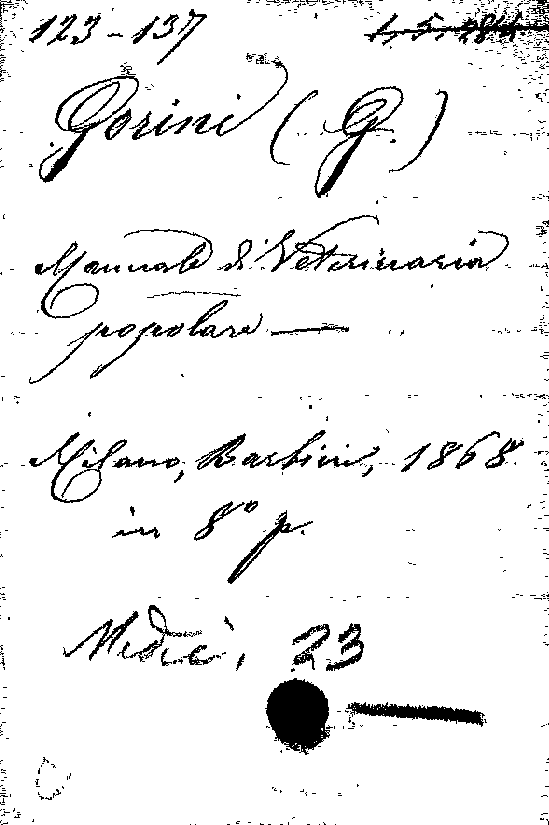 123-137
Gorini (G.)
Manuale di Veterinaria
popolare —
Milano, Barbini, 1868
in 8° p.
Medic, 23